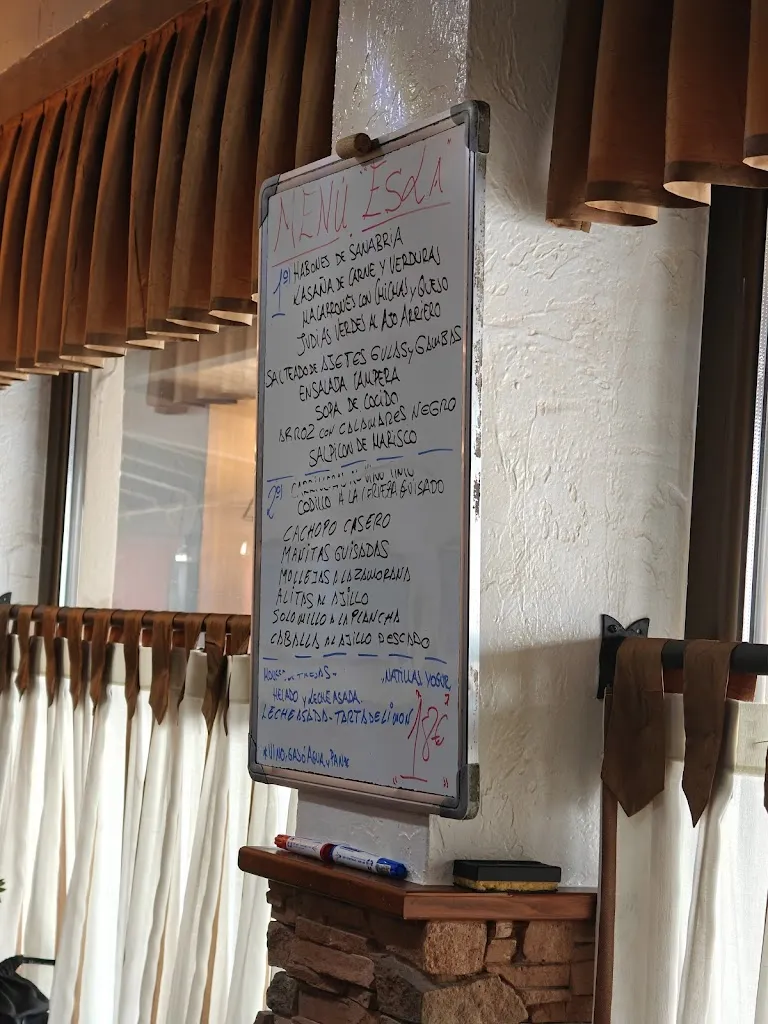 MENÚ "ESLA"
1º) HABONES DE SANABRIA
LASAÑA DE CARNE Y VERDURAS
MACARRONES CON CHICHAS y QUESO
JUDIAS VERDES AL AJO ARRIERO
SALTEADO DE AJETES GULAS y GAMBAS
ENSALADA CAMPERA
SOPA DE COCIDO
ARROZ CON CALAMARES NEGRO
SALPICON DE MARISCO
2º) CARRILLERAS AL VINO TINTO
CODILLO A LA CERVEZA GUISADO
CACHOPO CASERO
MANITAS GUISADAS
MOLLEJAS A LA ZAMORANA
ALITAS AL AJILLO
SOLOMILLO A LA PLANCHA
CABALLA AL AJILLO PESCADO
NATILLAS YOGUR
HELADO y LECHE ASADA
LECHE ASADA - TARTA DE LIMON
18€
*VINO, GASÓ AGUA y PAN*